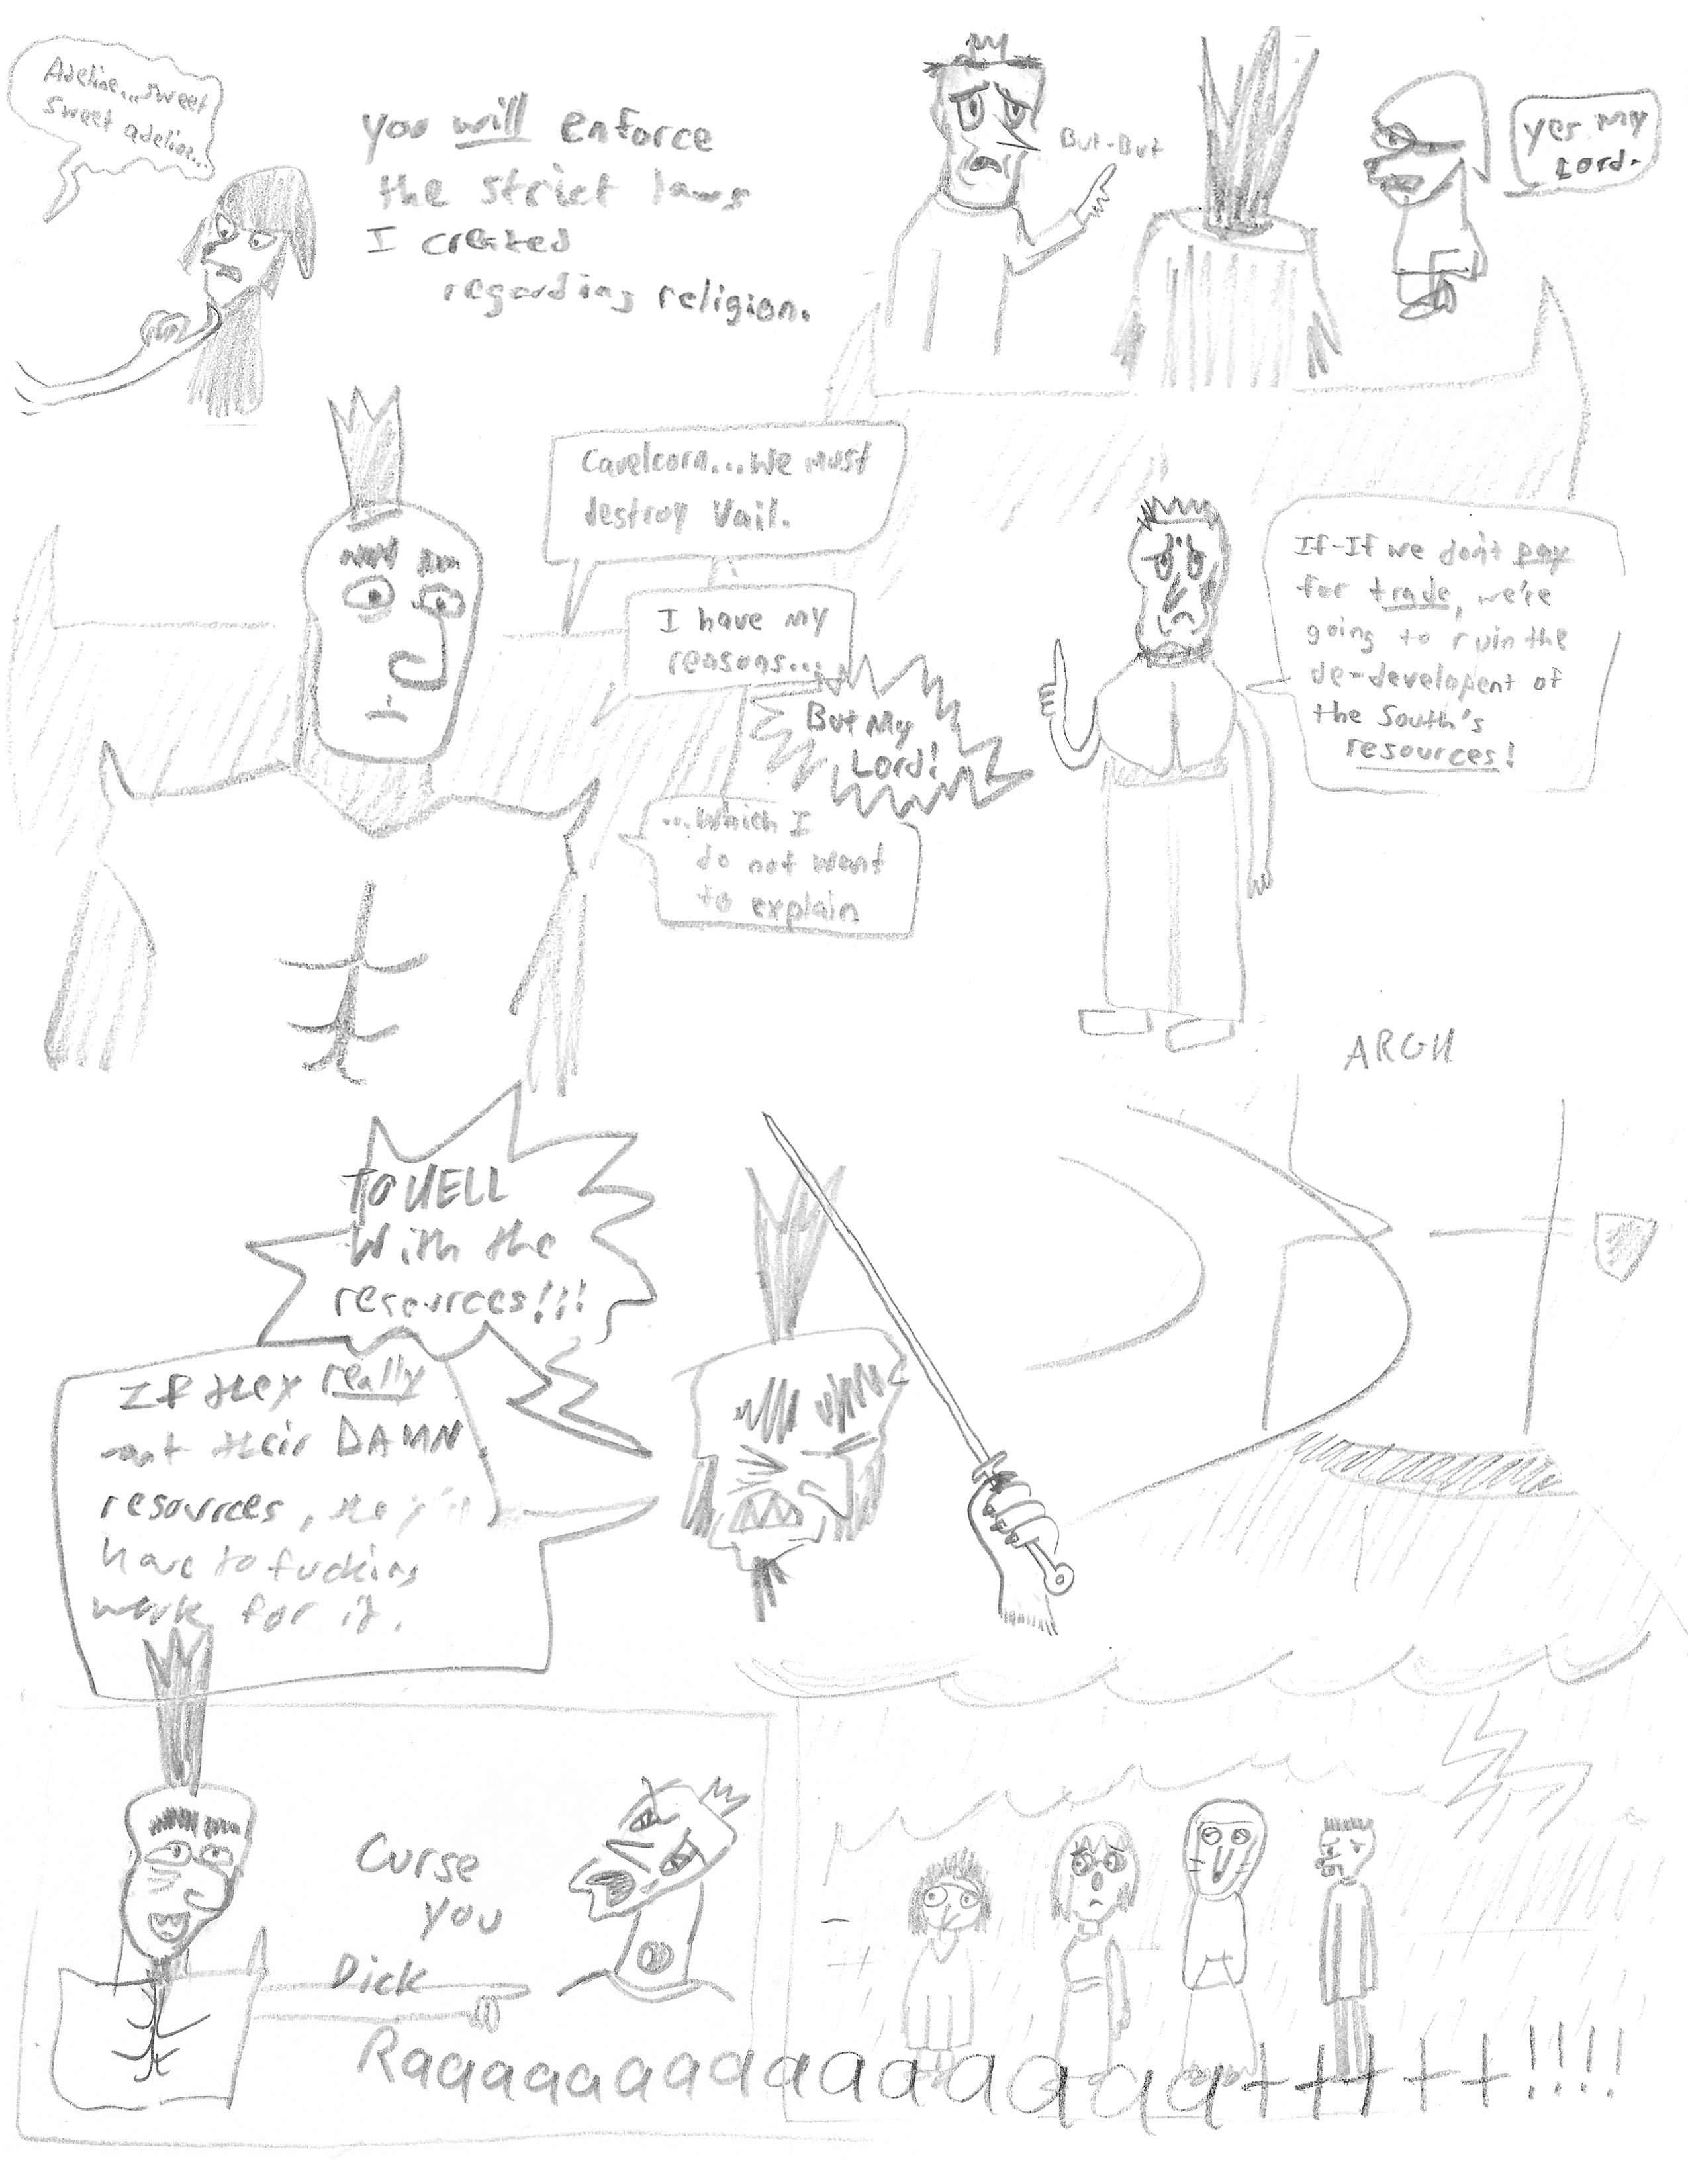 Adeline...sweet
sweet adeline...
you will enforce
the strict laws
I created
regarding religion.
But-But
yes my
Lord.
Cavelcorn...We must
destroy Vail.
I have my
reasons...
But My
Lord!
...Which I
do not want
to explain
If-If we don't pay
for trade, we're
going to ruin the
de-develoPent of
the South's
resources!
ARGH
TO HELL
With the
resources!!!
If they really
want their DAMN
resources, they'll
have to fucking
work for it.
Curse
you
Dick
Raaaaaaaaaaaaattttt!!!!